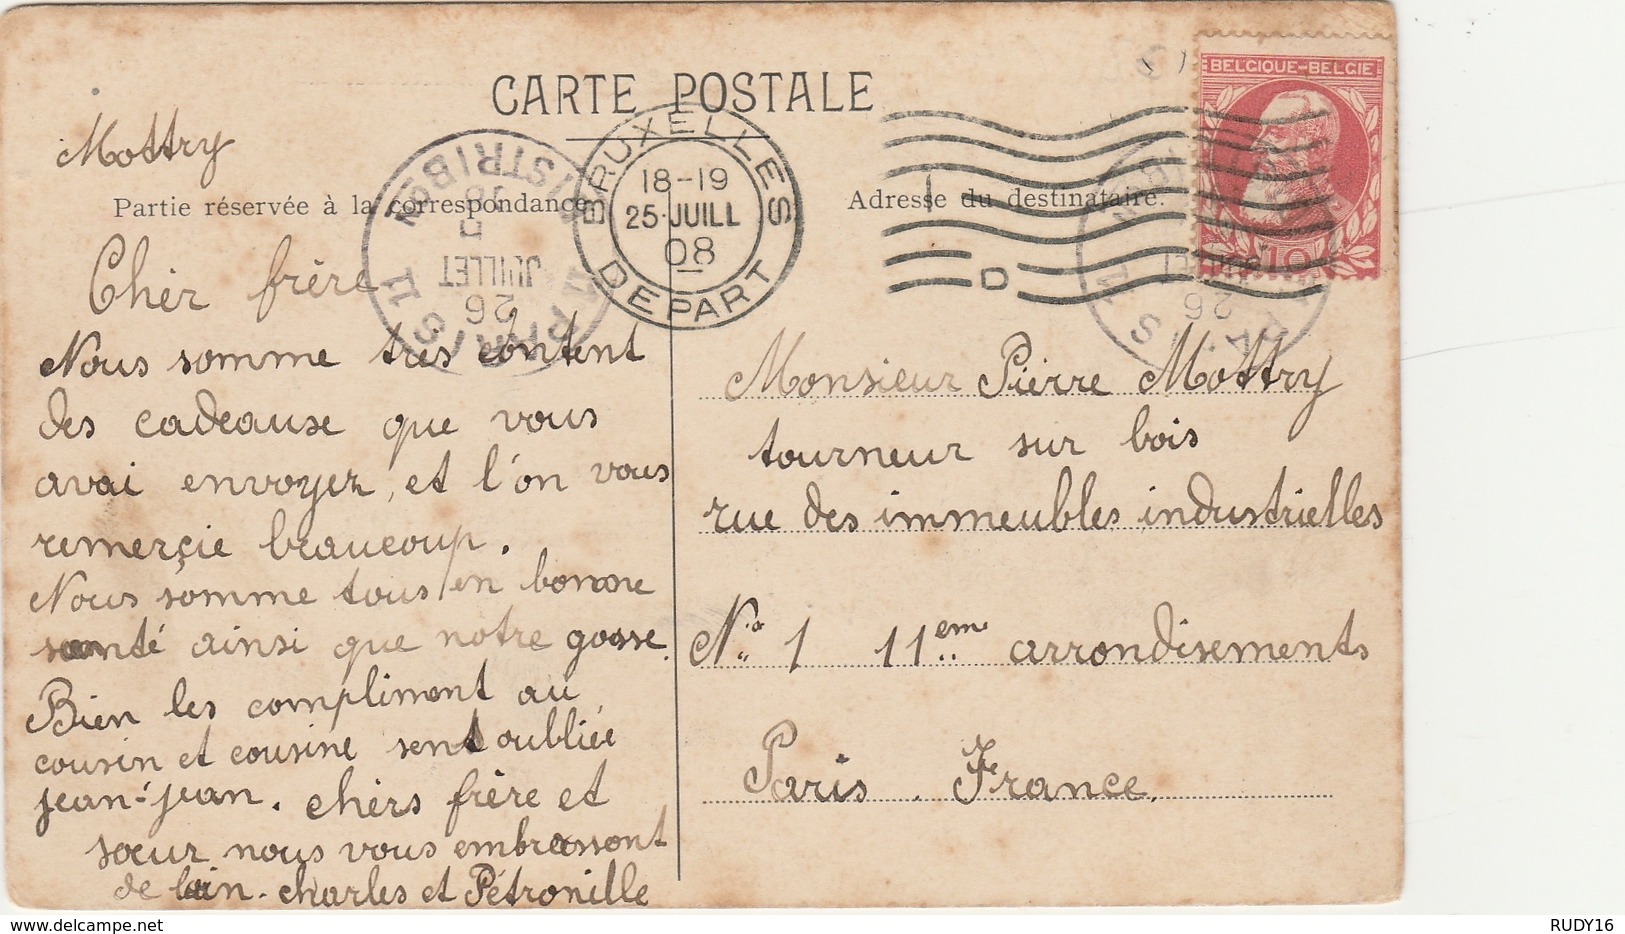 CARTE POSTALE
BELGIQUE-BELGIE
10
BRUXELLES
18-19
25 JUILL
08
DEPART
D
PARIS II
DISTRIBon
26
JUILLET
08
26
Mottry
Partie réservée à la correspondance.
Adresse du destinataire.
Cher frère
Nous somme très content
des cadeause que vous
avai envoyer, et l'on vous
remerçie beaucoup.
Nous somme tous en bonne
santé ainsi que notre gosse.
Bien les compliment au
cousin et cousine sent oubliée
jean-jean. chèrs frère et
sœur nous vous embrassont
de lain. charles et Pétronille
Monsieur Pierre Mottry
tourneur sur bois
rue des immeubles industrielles
No 1 11eme arrondisements
Paris. France.
RUDY16